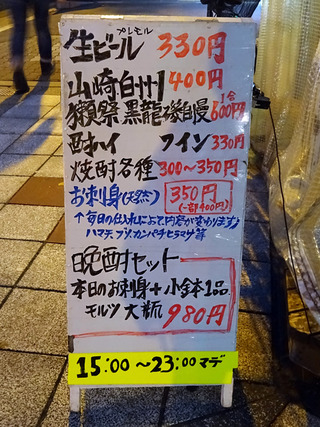 プレモル
生ビール 330円
山崎 白州 400円
獺祭 黒龍 嫁自慢 1合 600円
酎ハイ ワイン 330円
焼酎各種 300〜350円
お刺身(天然) 350円
(一部400円)
↑毎日の仕入れによって内容が変わります♪
ハマチ ブリ カンパチ ヒラマサ 等
晩酌セット
本日のお刺身+小鉢1品
モルツ 大瓶 980円
15:00〜23:00マデ